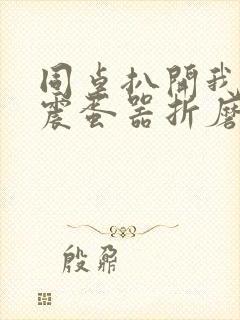 同桌扒開我
震蛋器折磨
殷鼐